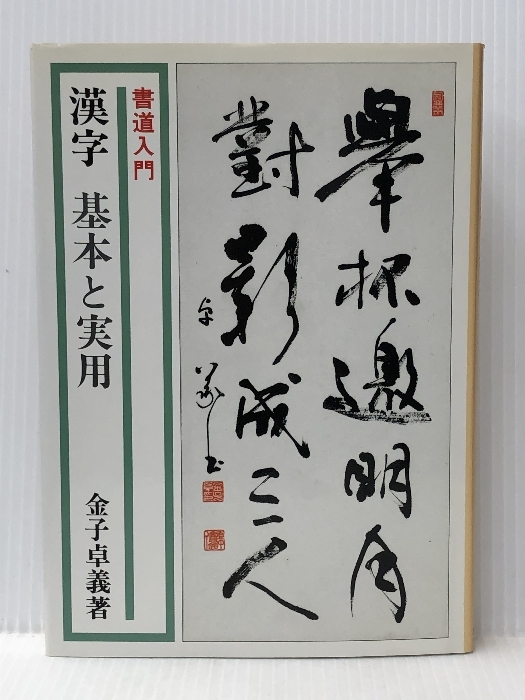 舉杯邀明月
對影成三人
卓義書
書道入門
漢字 基本と実用
金子卓義著